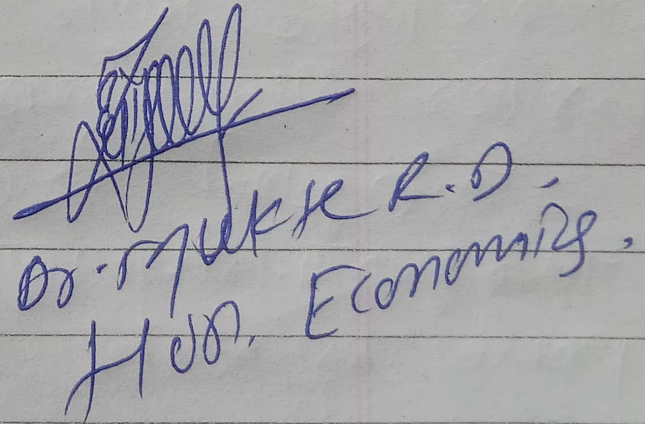 Dr. Mukhe R.D.
HOD. Economics.